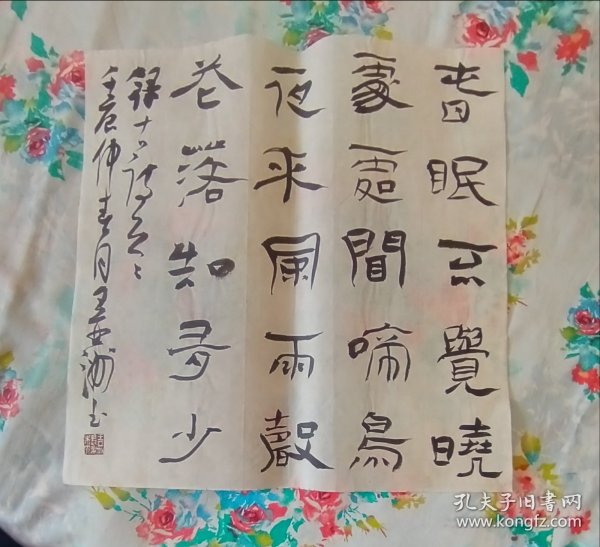 春眠不覺曉
處處聞啼鳥
夜來風雨聲
花落知多少
錄古人詩一首
仲春月王亚洲书
孔夫子旧书网
www.kongfz.com